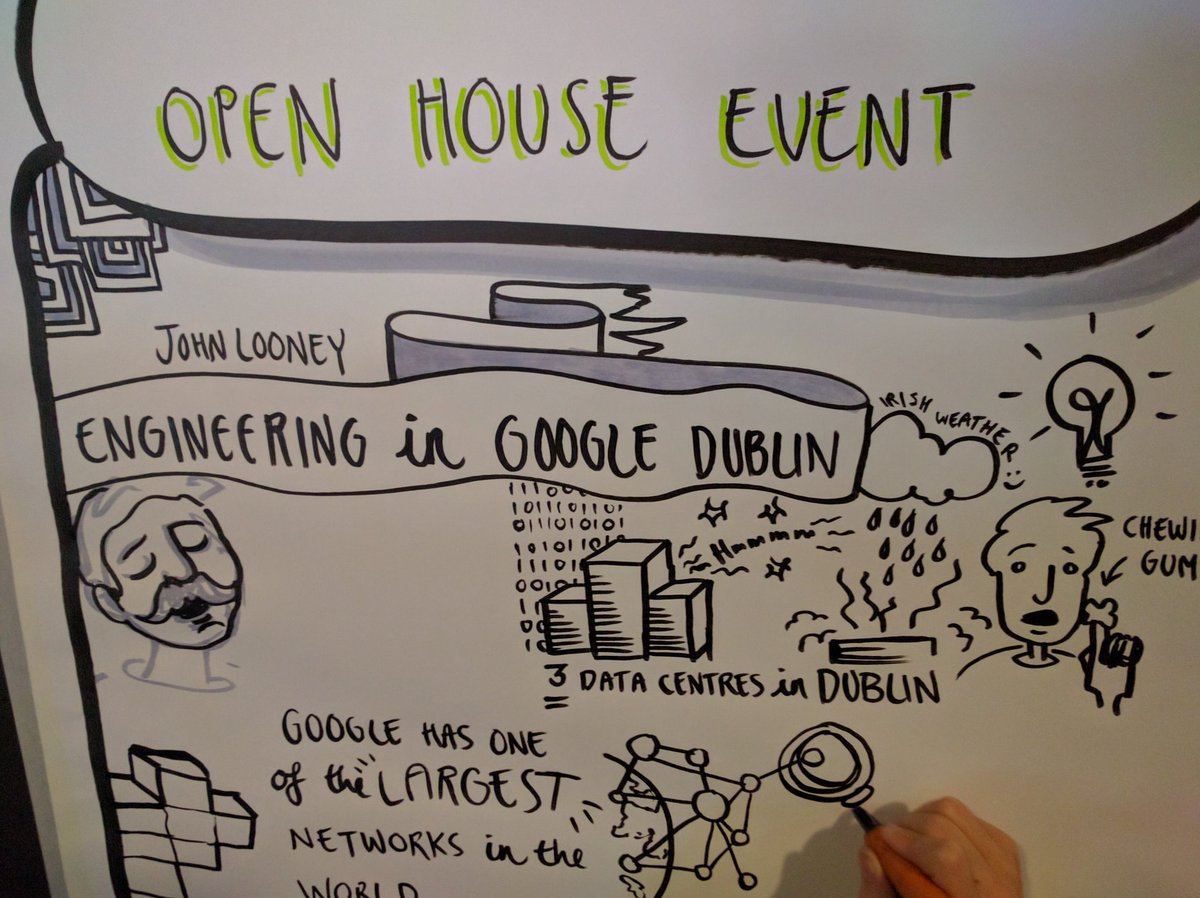 OPEN HOUSE EVENT
JOHN LOONEY
ENGINEERING in GOOGLE DUBLIN
IRISH WEATHER
Hmmmm
CHEWI
GUM
3 DATA CENTRES in DUBLIN
GOOGLE HAS ONE
of the LARGEST
NETWORKS in the
WORLD